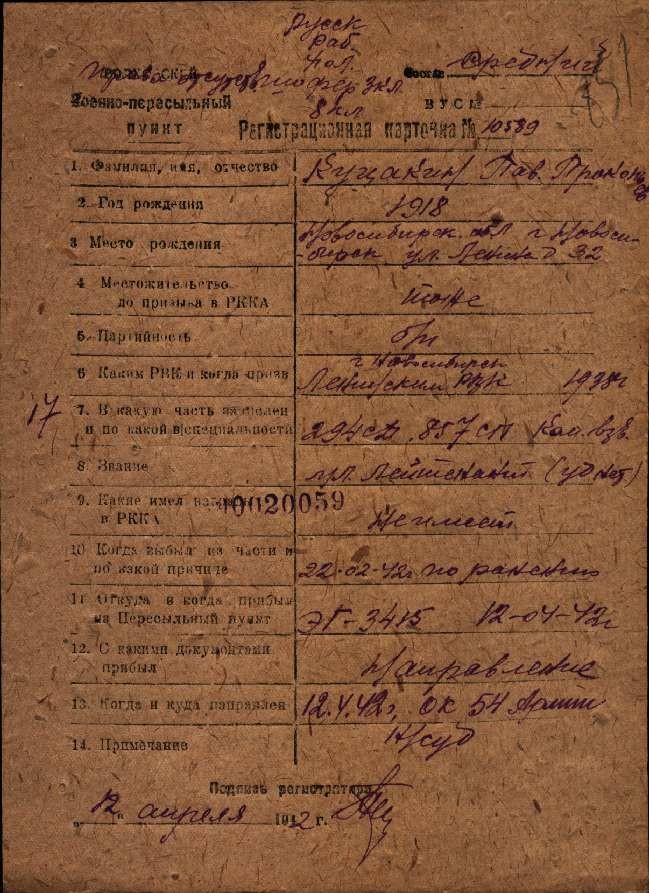 русск
раб
Состав средний
3 кл
Военно-пересыльный
8 кл
ВУС №
пункт
Регистрационная карточка № 10589
1. Фамилия, имя, отчество Куцакин Пав. Прокоп
2. Год рождения 1918
3 Место рождения Новосибирск. обл г Новоси-
-бирск ул. Ленина д 32
4 Местожительство
до призыва в РККА тоже
5. Партийность б/п
г Новосибирск
6 Каким РВК и когда призв Ленинский РВК 1938г
17
7. В какую часть зачислен
и по какой в/специальности 294 сд. 857 сп Ком. взв.
8. Звание мл. лейтенант (уд нет)
9. Какие имел
в РККА не имеет
10020059
10 Когда выбыл из части и
по какой причине 22-02-42г по ранению
11 Откуда и когда прибыл
на Пересыльный пункт ЭГ-3415 12-04-42г
12. С какими документами
прибыл Направление
13. Когда и куда направлен 12.4.42г, ОК 54 Армии
14. Примечание
Подпись регистратора
„12" апреля 1942 г.